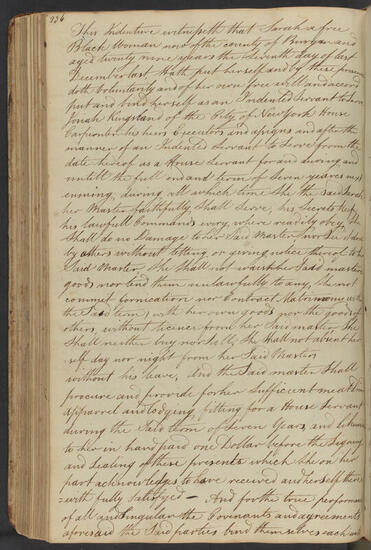 236
This Indenture witnesseth that Sarah a free
Black Woman now of the county of Bergen and
aged twenty nine years the Seventh day of last
December last Hath put herself and by these presents
doth Voluntarily and of her own free will and accord
put and bind herself as an Indented Servant to
Josiah Kingsland of the City of New York House
Carpenter his heirs Executors and assigns and after the
manner of an Indented Servant to Serve from the
date hereof as a House Servant for and during and
untill the full end and term of Seven years next
ensuing, during all which time She the said Sarah
her Master faithfully Shall Serve, his Secrets keep
his lawfull Commands every where readily obey She
Shall do no Damage to her Said Master nor See it done
by others without letting or giving notice thereof to her
Said Master She Shall not waist her Said masters
goods nor lend them unlawfully to any, She not
commit fornication nor Contract Matrimony within
the Said term; with her own goods nor the goods of
others, without licence from her Said master She
Shall neither buy nor sell, She Shall not absent her
self day nor night from her Said Masters
without his leave, And the Said master Shall
procure and provide for her Sufficient meat Drink
Apparrel and lodging, fitting for a House Servant
during the Said term of Seven Years, and
to her in hand paid one Dollar before the Signing
and Sealing of these presents which She on her
part acknowledges to have received and herself there
=with fully Satisfyed — And for the true performance
of all and Singular the Covenants and agreements
aforesaid the Said parties bind themselves each unto